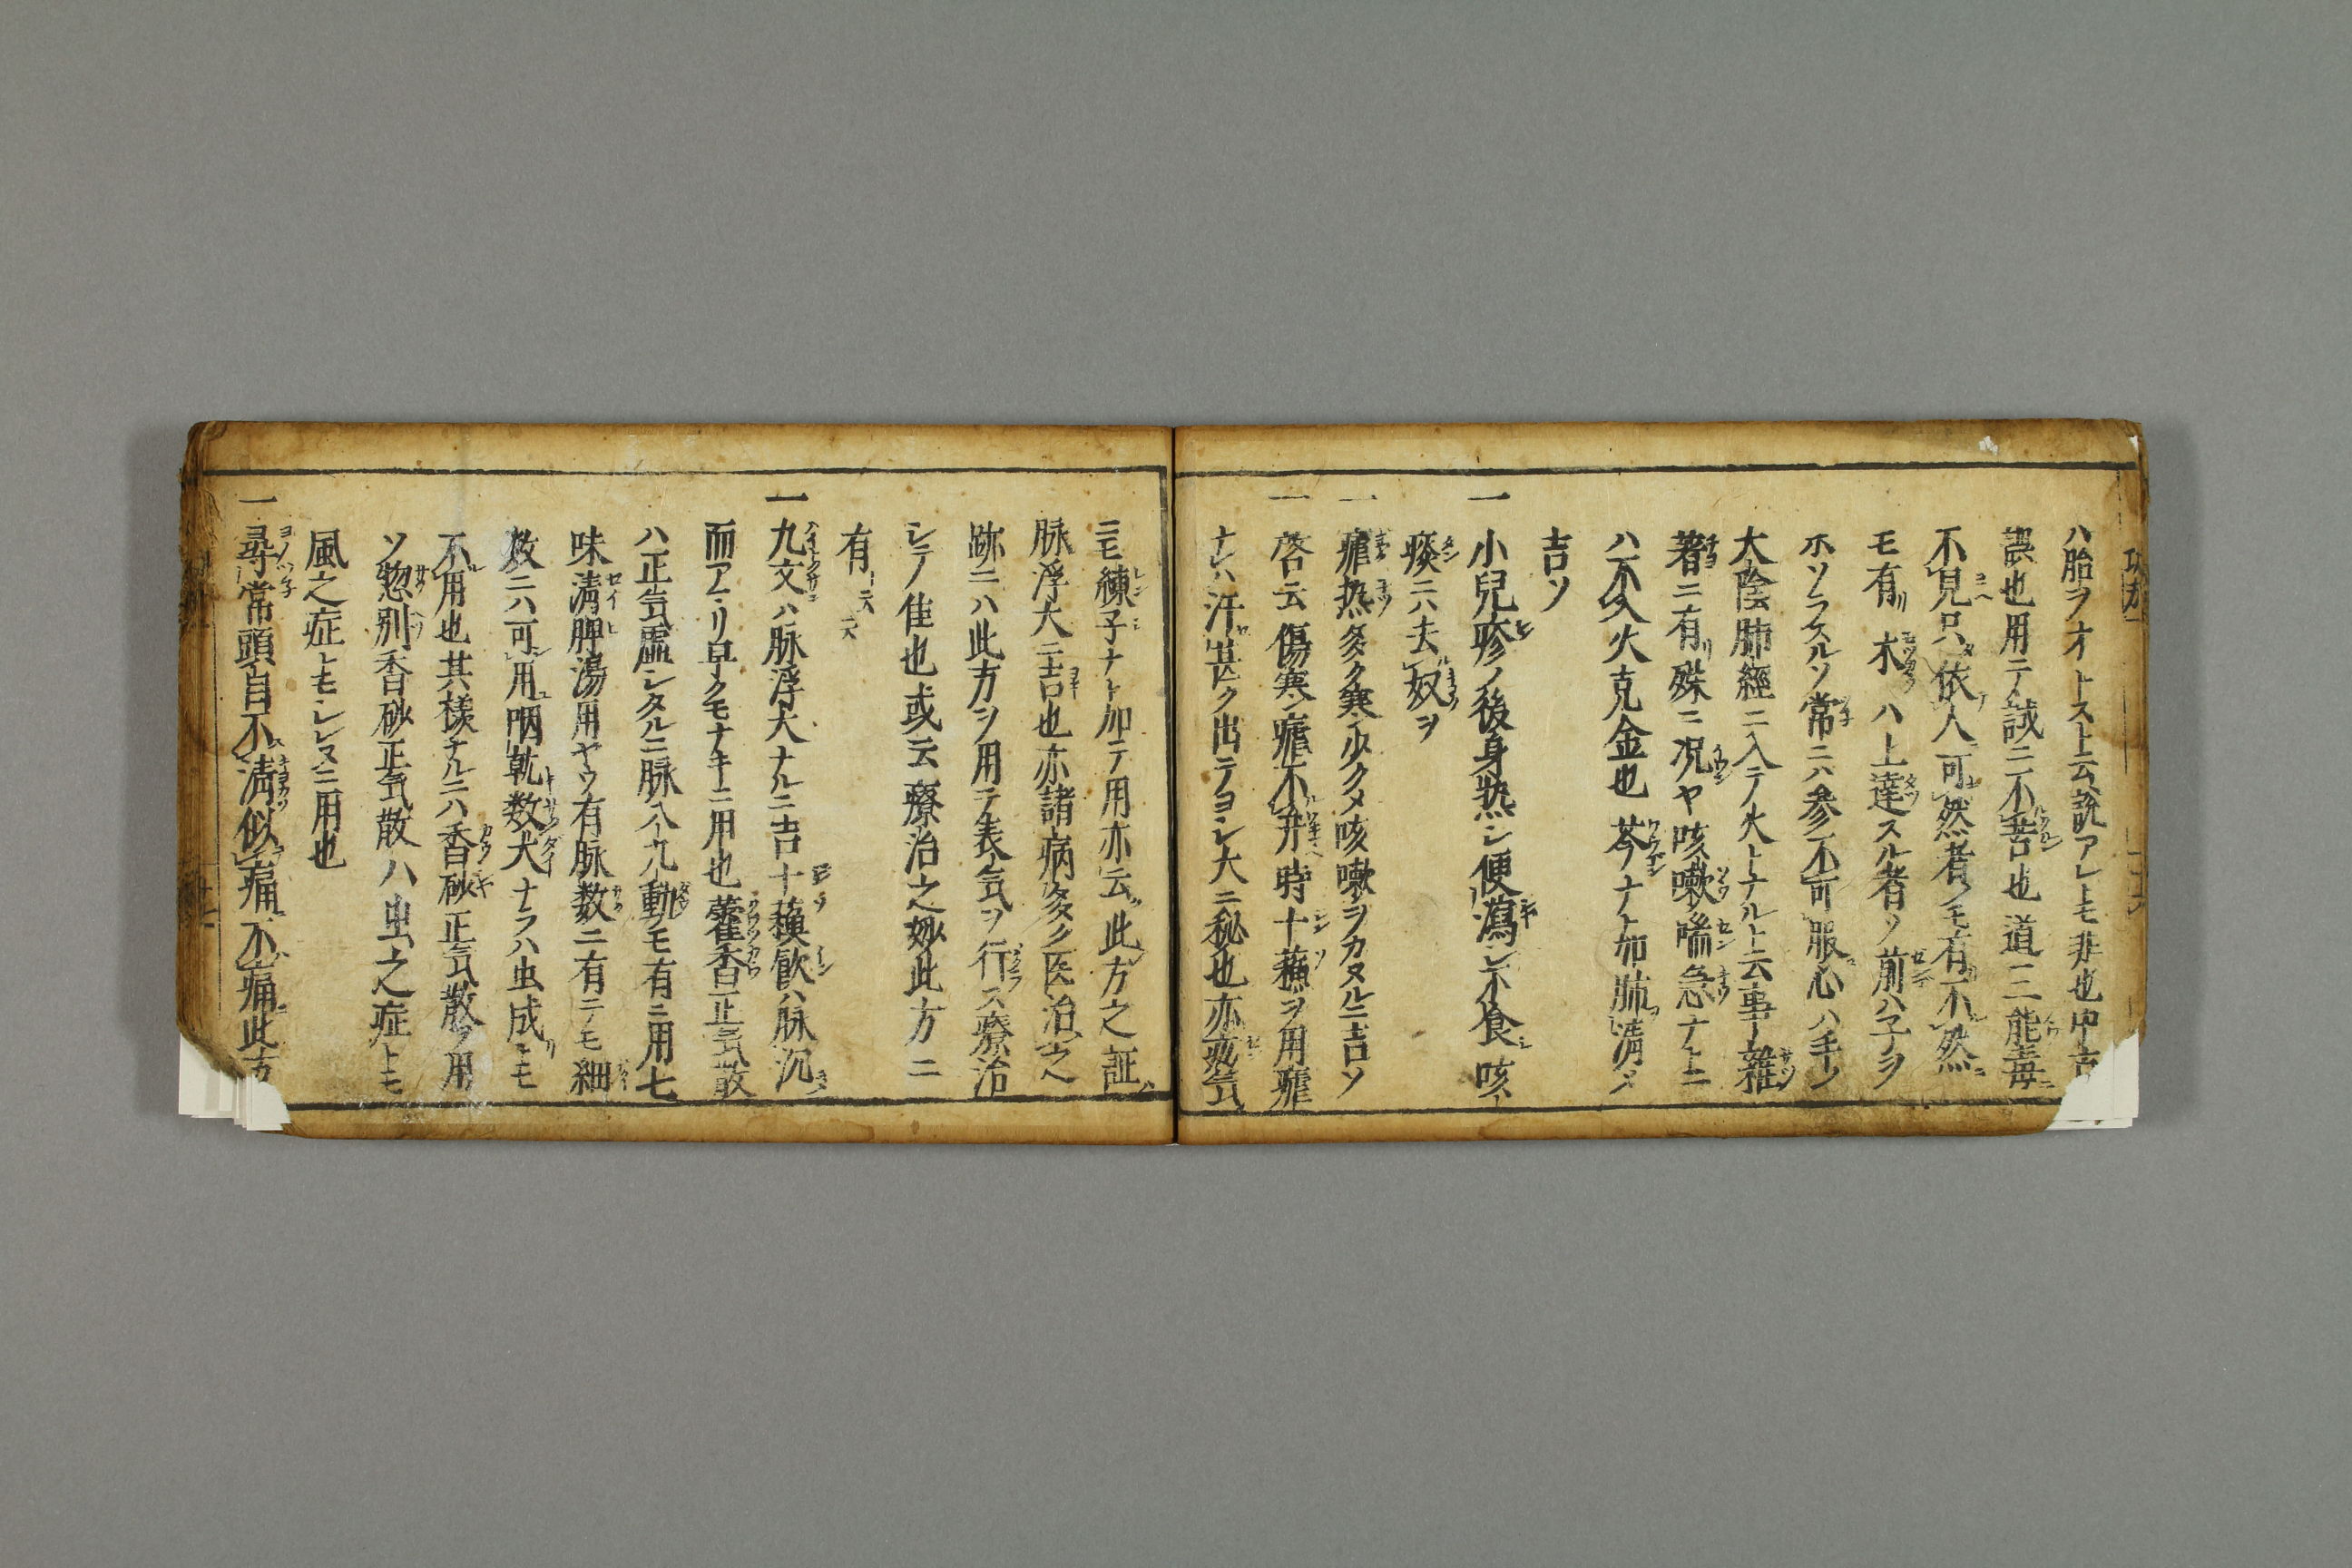 ハ胎ヲオトスト云説アレトモ非也中古
誤也用テ誠ニ不苦也道三能毒ニ
不見只依人可然者ノモ有不然
モ有木ハ上達スル者ソ煎ハ子ヲ
ホソラスルソ常ニハ参不可服心ハ手ノ
大陰肺經ニ入テ火トナルト云事雑
著ニ有殊ニ况ヤ咳嗽喘急ナトニ
ハ不久火克金也芩ナト加肺清メ
吉ソ
一小兒疹ノ後身熱シ便瀉シ不食咳
痰ニハ去奴ヲ
一瘧熱多ク寒少クメ咳嗽ヲカヌルニ吉ソ
一啓云傷寒瘧不弁時十蘓ヲ用瘧
ナレハ汗甚ク出テヨシ大ニ秘也亦疲気
ニモ練子ナト加テ用亦云此方之証ハ
脉浮大ニ吉也亦諸病多ク医治之
跡ニハ此方ヲ用テ表気ヲ行ス療治
シテ佳也或云療治之妙此方ニ
有ト云云
一九文ハ脉浮大ナルニ吉十蘓飲ハ脉沉
而アリ早クモナキニ用也藿香正気散
ハ正気虚シタルニ脉八九動モ有ニ用七
味清脾湯用ヤウ有脉数ニ有テモ細
数ニハ可用咽乾数大ナラハ虫成トモ
不用也其様ナルニハ香砂正気散ヲ用
ソ惣別香砂正気散ハ虫之症トモ
風之症トモシレヌニ用也
一尋常頭自不清似痛不痛此方